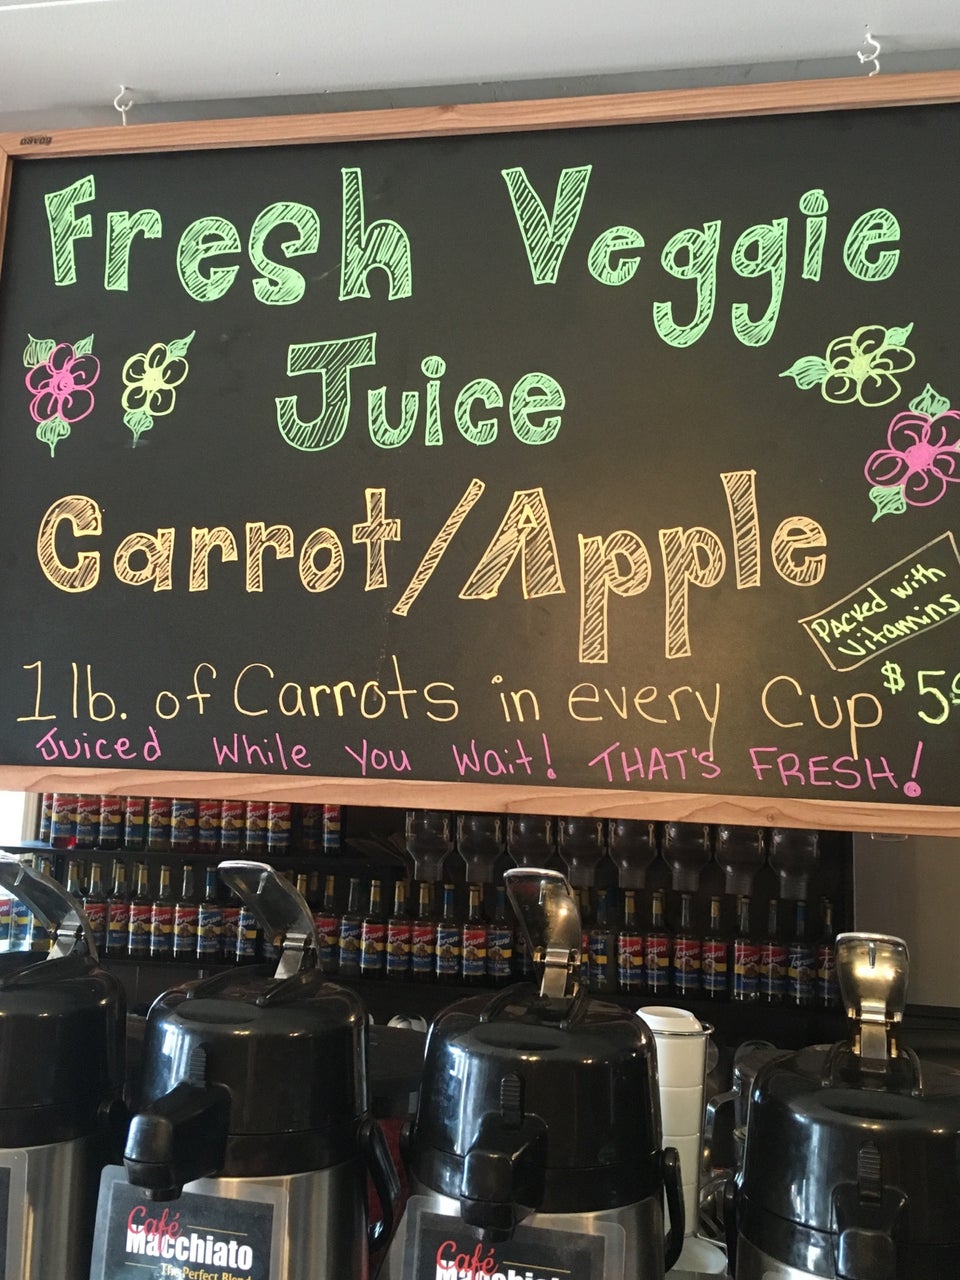 Fresh Veggie
Juice
Carrot/Apple
Packed with
Vitamins
1 lb. of Carrots in every Cup $5
Juiced While You Wait! THAT'S FRESH!
Torani
Café
Macchiato
The Perfect Blend
Café
Macchiato